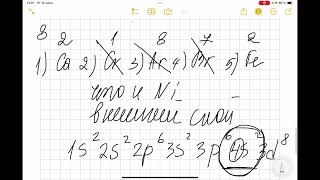 8 2 1 8 7 2
1) Ca 2) Cr 3) Ar 4) Br 5) Fe
что и Ni
внешний слой
1s² 2s² 2p⁶ 3s² 3p⁶ 4s² 3d⁸